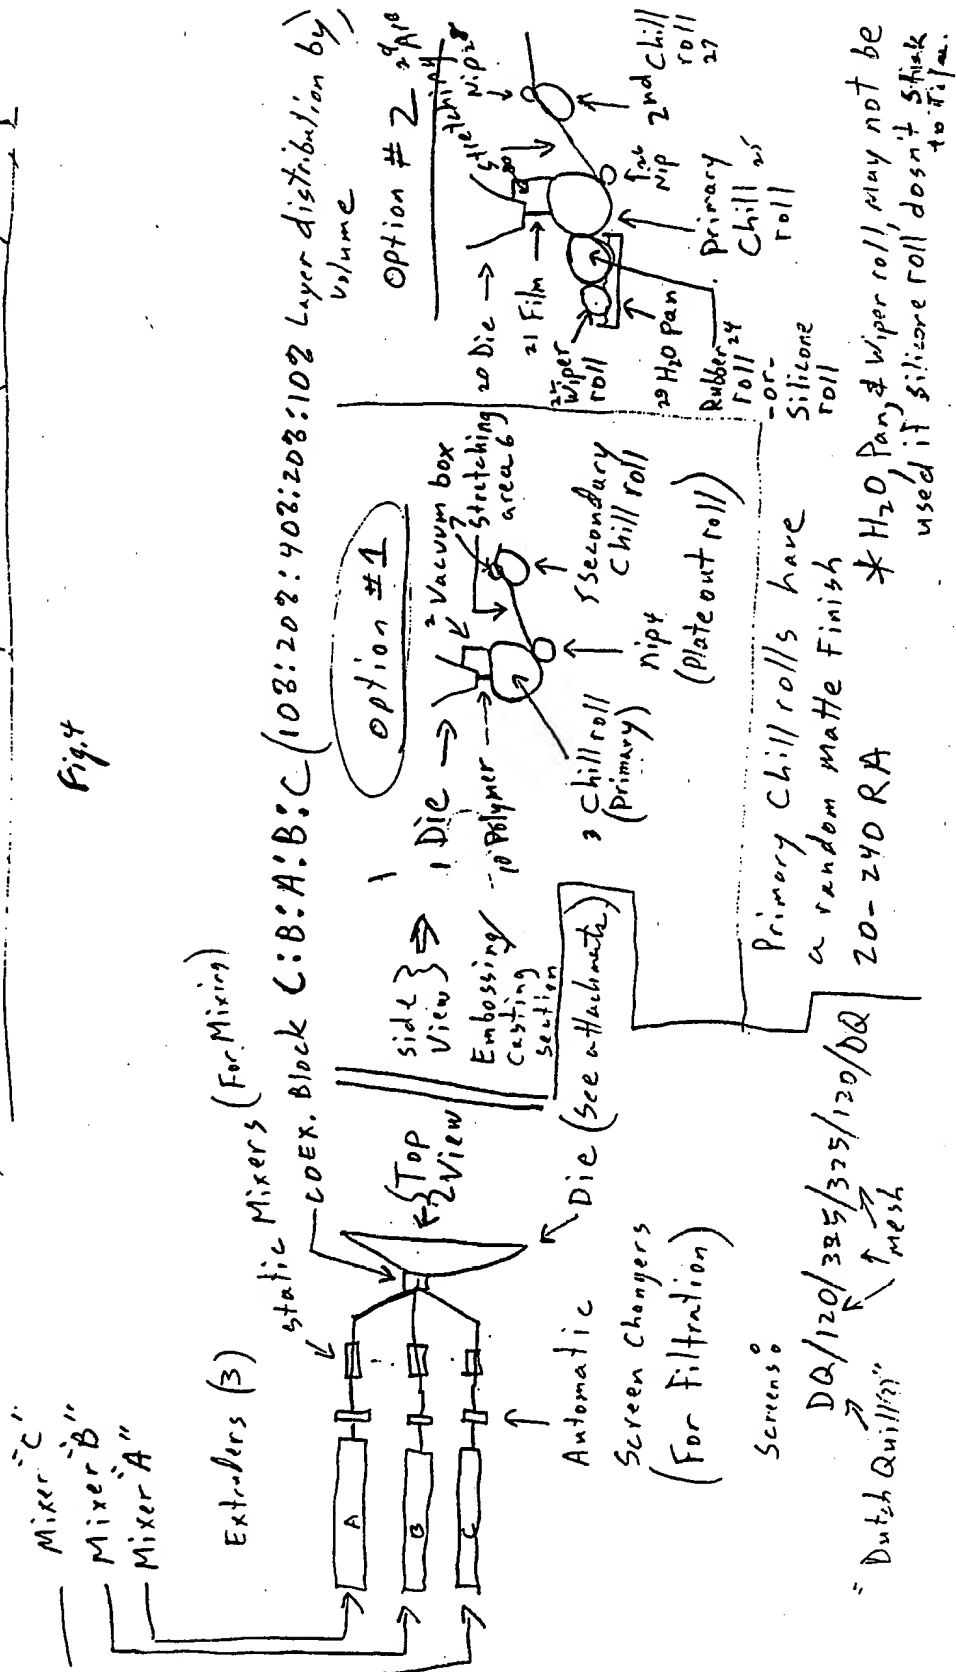 Fig. 4
Mixer "C"
Mixer "B"
Mixer "A"
Extruders (3)
A
B
C
Static Mixers (For Mixing)
COEX. Block C:B:A:B:C (10%:20%:40%:20%:10% Layer distribution by
volume
{Top
View
Die (See attachments)
Automatic
Screen Changers
(For Filtration)
Screens:
DQ/120/325/325/120/DQ
mesh
Side
View}
Embossing/
Casting
Section
Option #1
1 Die
10 Polymer
2 Vacuum box
7
Stretching
area 6
3 Chill roll
(Primary)
Nip 4
5 Secondary
Chill roll
(Plate out roll)
Primary Chill rolls have
a random matte Finish
20-240 RA
Option # 2
20 Die
21 Film
Nip 28
Wiper
roll
29 H2O Pan
Rubber 24
roll
-or-
Silicone
roll
Primary 25
Chill
roll
26
Nip
2nd Chill
roll
27
* H2O Pan, & Wiper roll, may not be
used if silicone roll dosn't stick
to film.